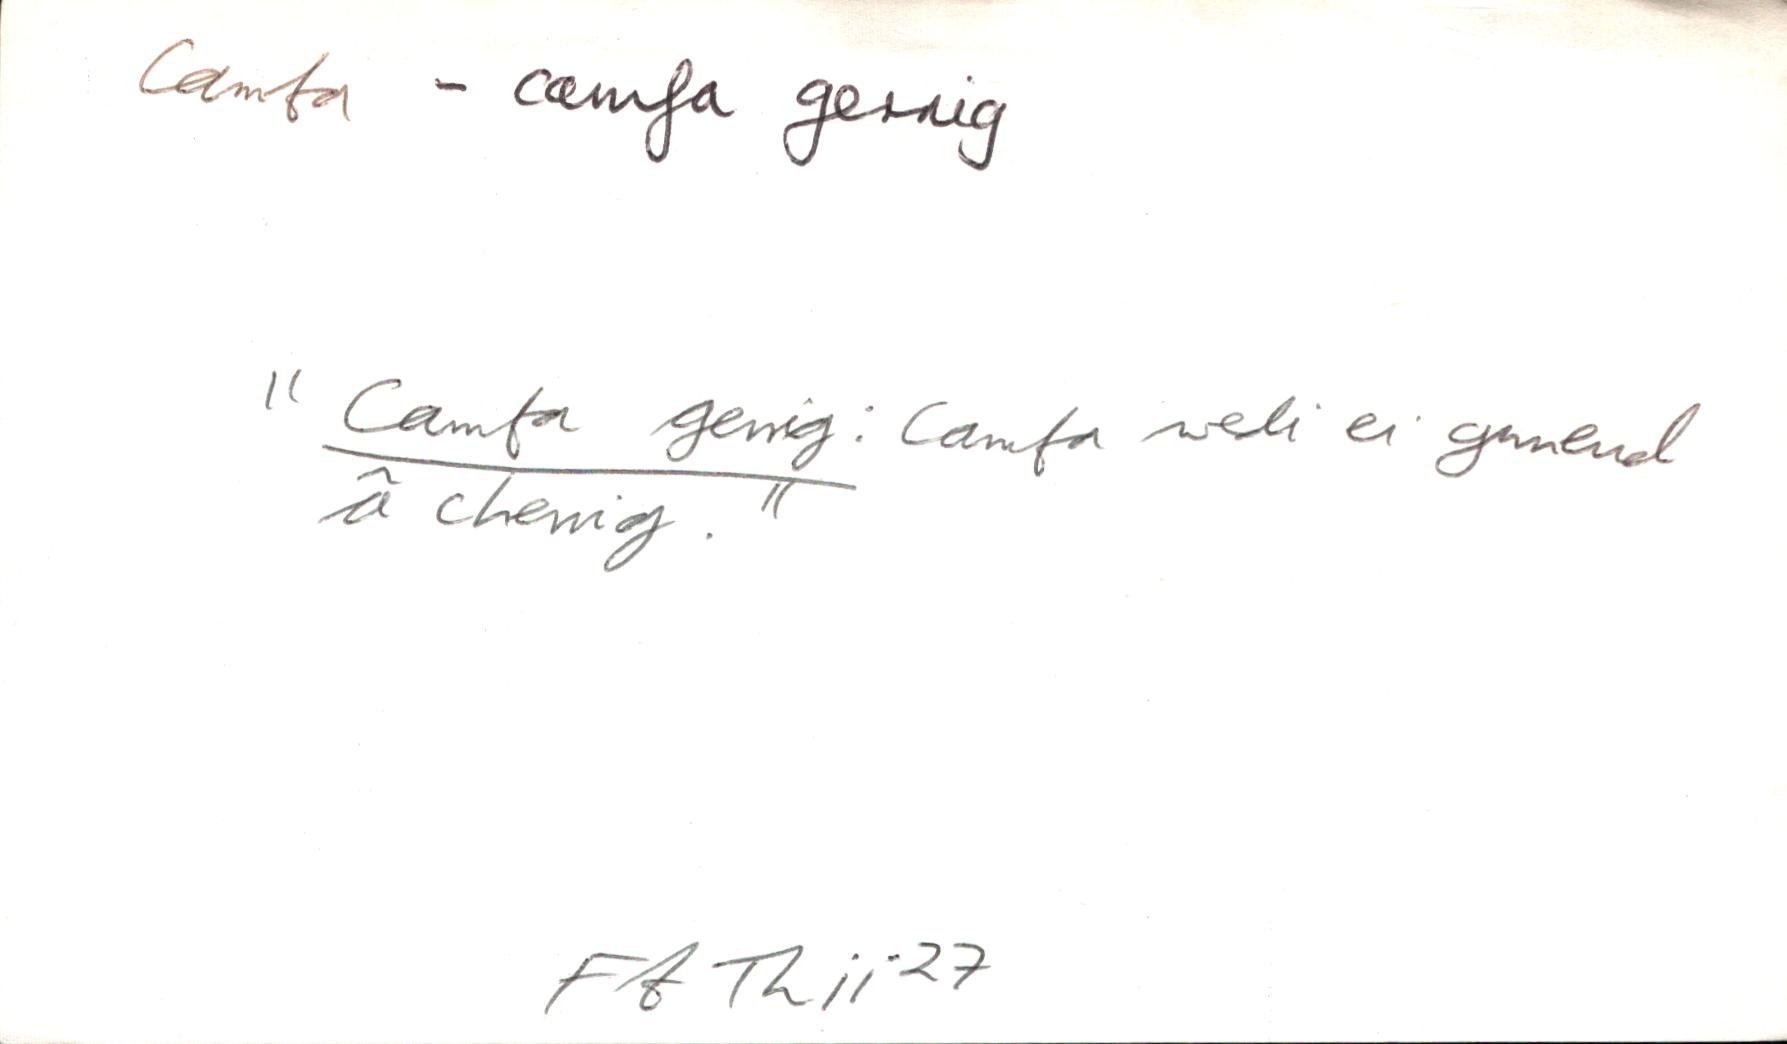 Camfa - camfa gerrig
"Camfa gerrig: Camfa wedi ei gwneud
â cherrig."
Ff Th ii 27